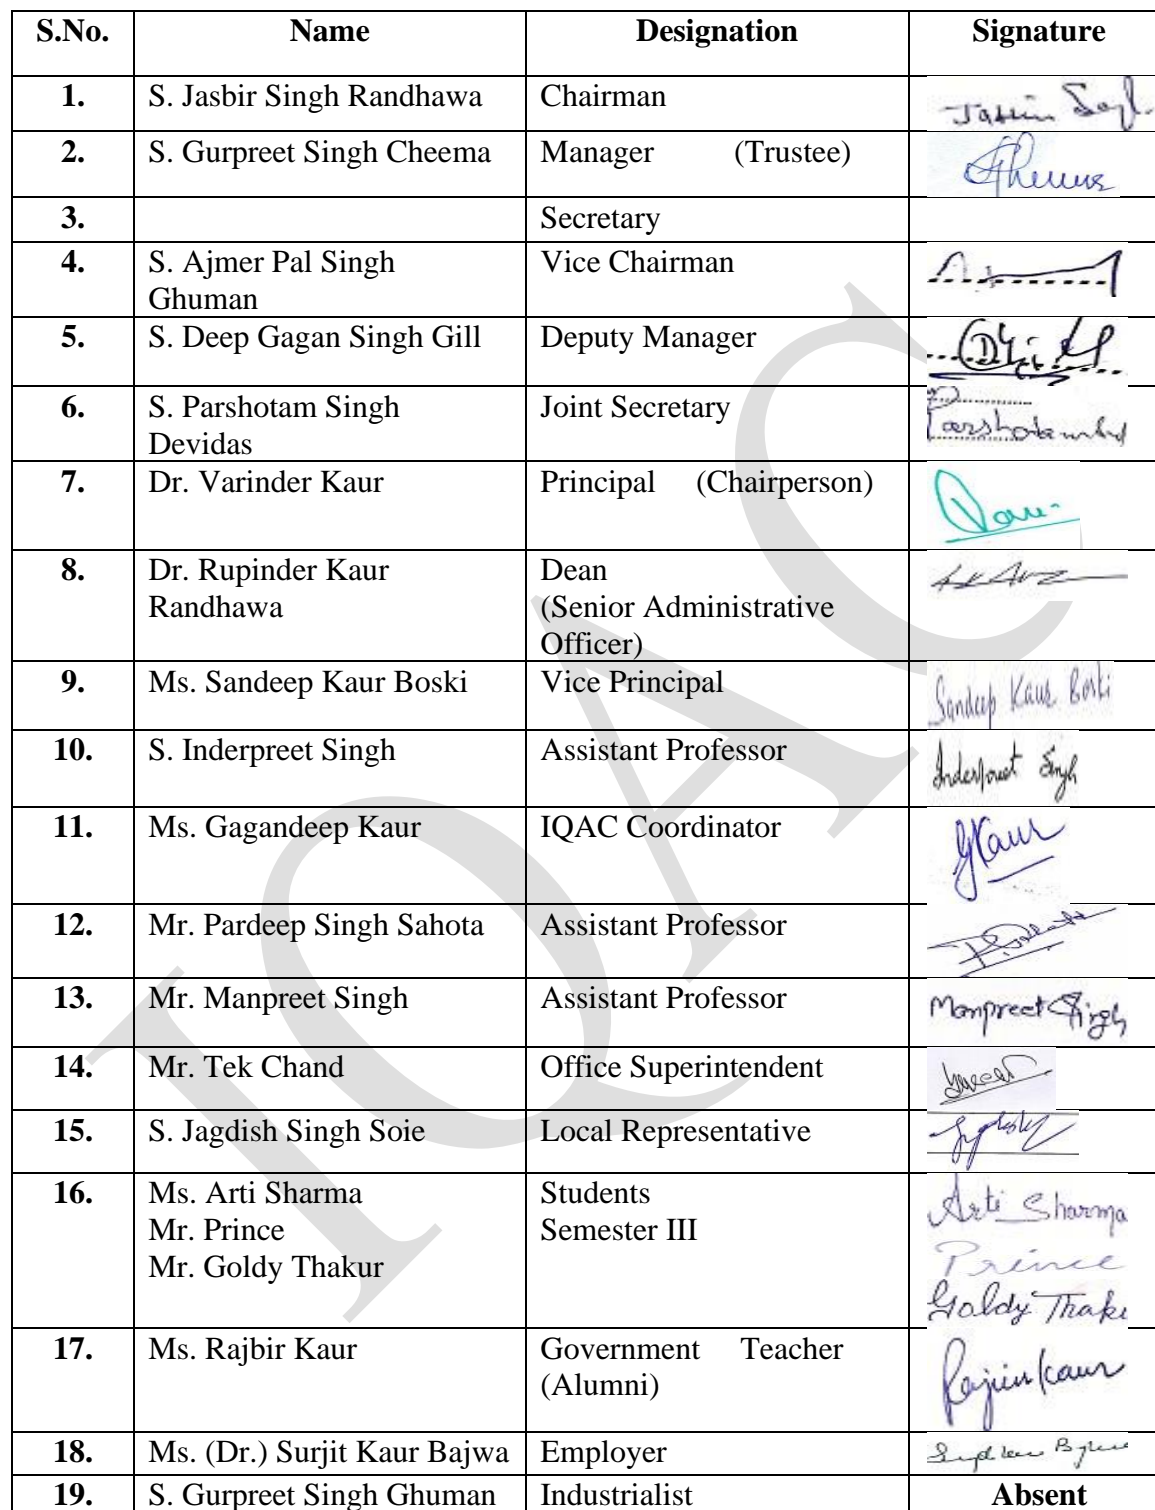 S.No. Name Designation Signature
1. S. Jasbir Singh Randhawa Chairman
2. S. Gurpreet Singh Cheema Manager (Trustee) Cheema
3. Secretary
4. S. Ajmer Pal Singh Vice Chairman
Ghuman
5. S. Deep Gagan Singh Gill Deputy Manager
6. S. Parshotam Singh Joint Secretary
Devidas
7. Dr. Varinder Kaur Principal (Chairperson)
8. Dr. Rupinder Kaur Dean
Randhawa (Senior Administrative
Officer)
9. Ms. Sandeep Kaur Boski Vice Principal Sandeep Kaur Boski
10. S. Inderpreet Singh Assistant Professor Inderpreet Singh
11. Ms. Gagandeep Kaur IQAC Coordinator GKaur
12. Mr. Pardeep Singh Sahota Assistant Professor
13. Mr. Manpreet Singh Assistant Professor Manpreet Singh
14. Mr. Tek Chand Office Superintendent
15. S. Jagdish Singh Soie Local Representative
16. Ms. Arti Sharma Students Arti Sharma
Mr. Prince Semester III Prince
Mr. Goldy Thakur Goldy Thaku
17. Ms. Rajbir Kaur Government Teacher Kaur
(Alumni)
18. Ms. (Dr.) Surjit Kaur Bajwa Employer
19. S. Gurpreet Singh Ghuman Industrialist Absent
IQAC